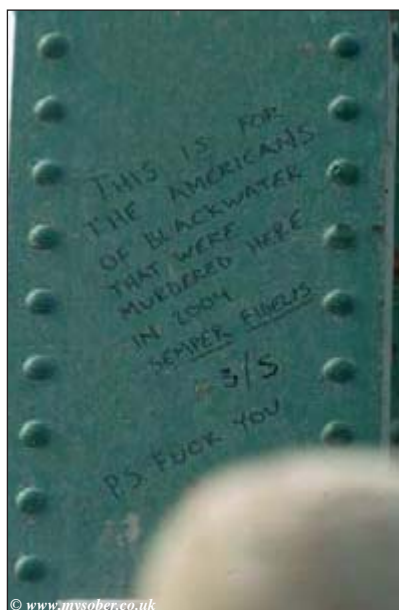 THIS IS FOR
THE AMERICANS
OF BLACKWATER
THAT WERE
MURDERED HERE
IN 2004
SEMPER FIDELIS
3/5
P.S. FUCK YOU
© www.mysober.co.uk